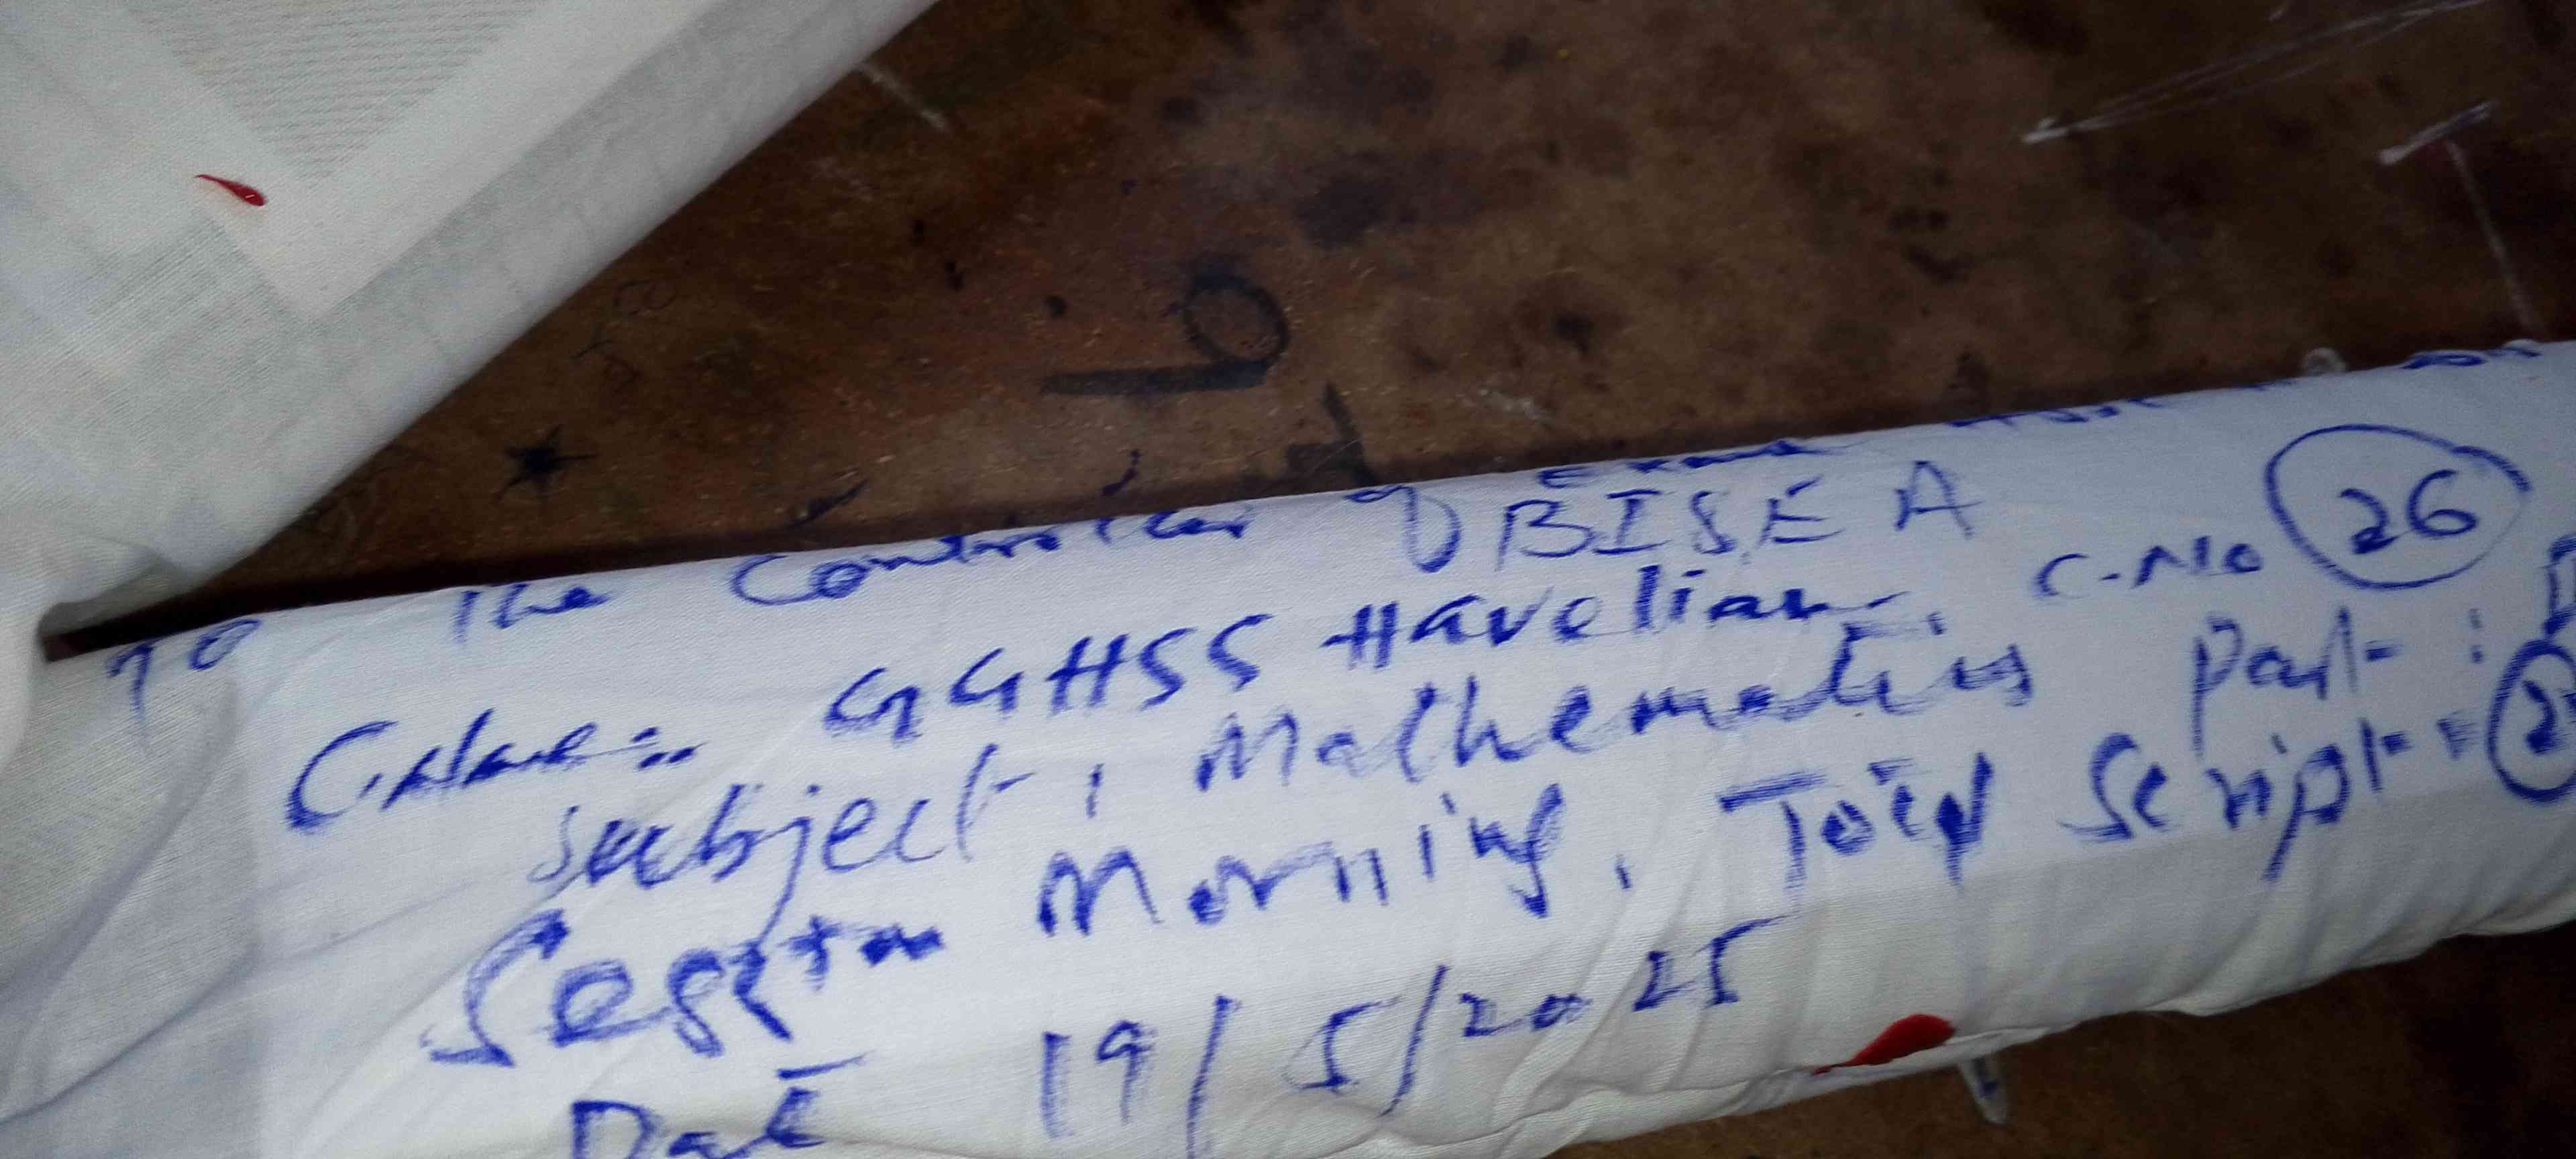 To The Controller of
BISE A
C.Name:- GGHSS Havelian. C.No 26
Subject: Mathematics Part:
Session Morning, Total Script:
Date 19/5/2025